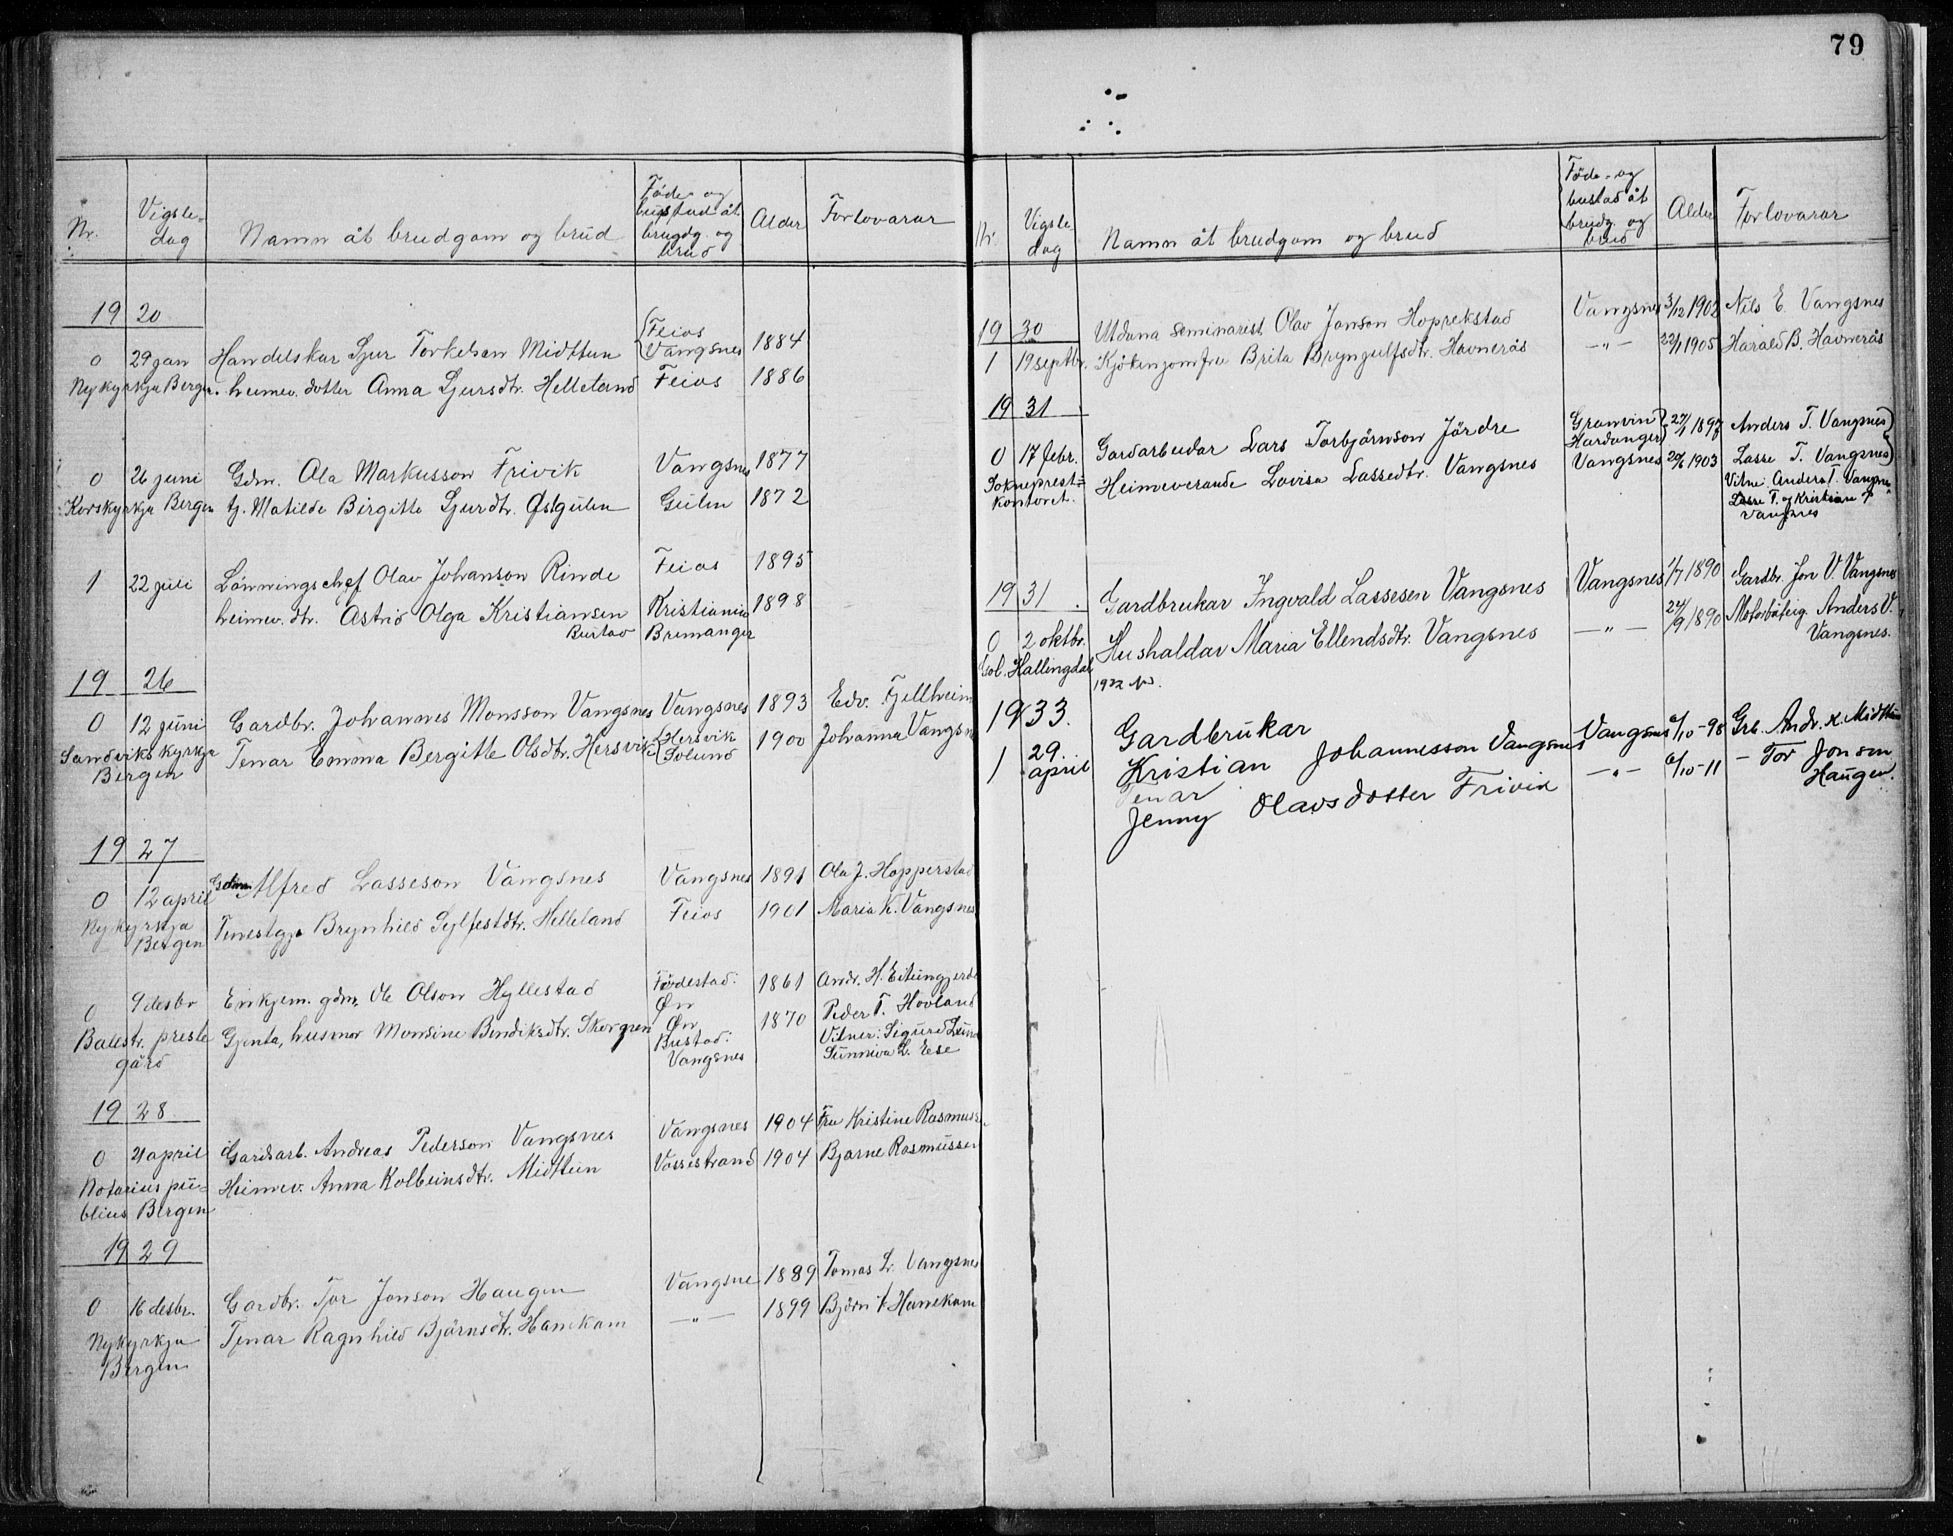 79
Nr. Vigsle-dag Namn åt brudgom og brud Føde- og bustad åt brudg. og brud Alder Forlovarar
1920
0 29 jan Handelskar Sjur Torkelson Midttun Feios Vangsnes 1884
Nykyrkja Bergen. heimev. dotter Anna Sjursdtr. Helleland Feios 1886
0 26 juni Gdm. Ola Markusson Frivik Vangsnes 1877
Korskyrkja Bergen tj. Matilde Birgitte Sjurdtr. Østgulen Gulen 1872
1 22 juli Lönningschef Olav Johanson Rinde Feios 1895
heimev. dtr. Astrid Olga Kristiansen Kristiania 1898
Bustad Bremanger
1926
0 12 juni Gardbr. Johannes Monsson Vangsnes Vangsnes 1893 Edv. Fjellheim
Sandvikskyrkja Bergen Tenar Emma Bergitte Olsdtr. Hersvik Hersvik Solund 1900 Johanna Vangsn
1927
0 12 april Gdm. Alfred Lasseson Vangsnes Vangsnes 1891 Ola J. Hopperstad
Nykyrkja Bergen Tenestgj. Brynhild Sylfestdtr. Helleland Feios 1901 Maria K. Vangsnes
0 9 desbr Enkjem. gdm. Ole Olson Hyllestad Födestad: Øn 1861 Andr. H. Eitungjerde
Balestr. prestegård Gjenta, husmor Monsine Bendiksdtr. Skorgen Øn 1870 Peder T. Hovland
Bustad: Vitner: Sigurd Lund
Vangsnes Sunniva L. Ese
1928
0 21 april Gardsarb. Andreas Pederson Vangsnes Vangsnes 1904 Fru Kristine Rasmuss.
Notarius publius Bergen Heimev. Anna Kolbeinsdtr. Midttun Vossestrand 1904 Bjarne Rasmussen
1929
0 16 desbr. Gardbr. Tor Jonson Haugen Vangsne 1889 Tomas L. Vangsnes
Nykyrkja Bergen Tenar Ragnhild Björnsdtr. Hanekam —"— 1899 Björn Hanekam
Nr. Vigsledag Namn åt brudgom og brud Føde- og bustad åt brudg. og brud Alder Forlovarar
1930 Utdana seminarist Olav Janson Hoprekstad Vangsnes 3/12 1902 Nils E. Vangsnes
1 19 septbr. Kjökenjomfru Brita Bryngulfsdtr. Havnerås —"— 22/1 1905 Harald B. Havnerås
1931
0 17 febr. Gardarbeidar Lars Torbjörnson Jördre Granvin Hardanger 27/1 1897 Anders T. Vangsnes
Sokneprestkontoret. Heimeverande Lovisa Lassedtr. Vangsnes Vangsnes 20/6 1903 Lasse T. Vangsnes
Vitne: Anders T. Vangsne
Lasse T. og Kristian
Vangsnes
1931. Gardbrukar Ingvald Lassesen Vangsnes Vangsnes 1/7 1890 Gardbr. Jon V. Vangsnes
0 2 oktbr. Hushaldar Maria Ellendsdtr. Vangsnes —"— 24/9 1890 Motorbåteig. Anders V. Vangsnes.
Gol. Hallingdal
1933. Gardbrukar
1 29. april Kristian Johannesson Vangsnes Vangsnes 6/10-98 Grb. Andr. K. Midttun
Tenar
Jenny Olavsdotter Frivik —"— 6/10-11 — Tor Jonson Haugen.